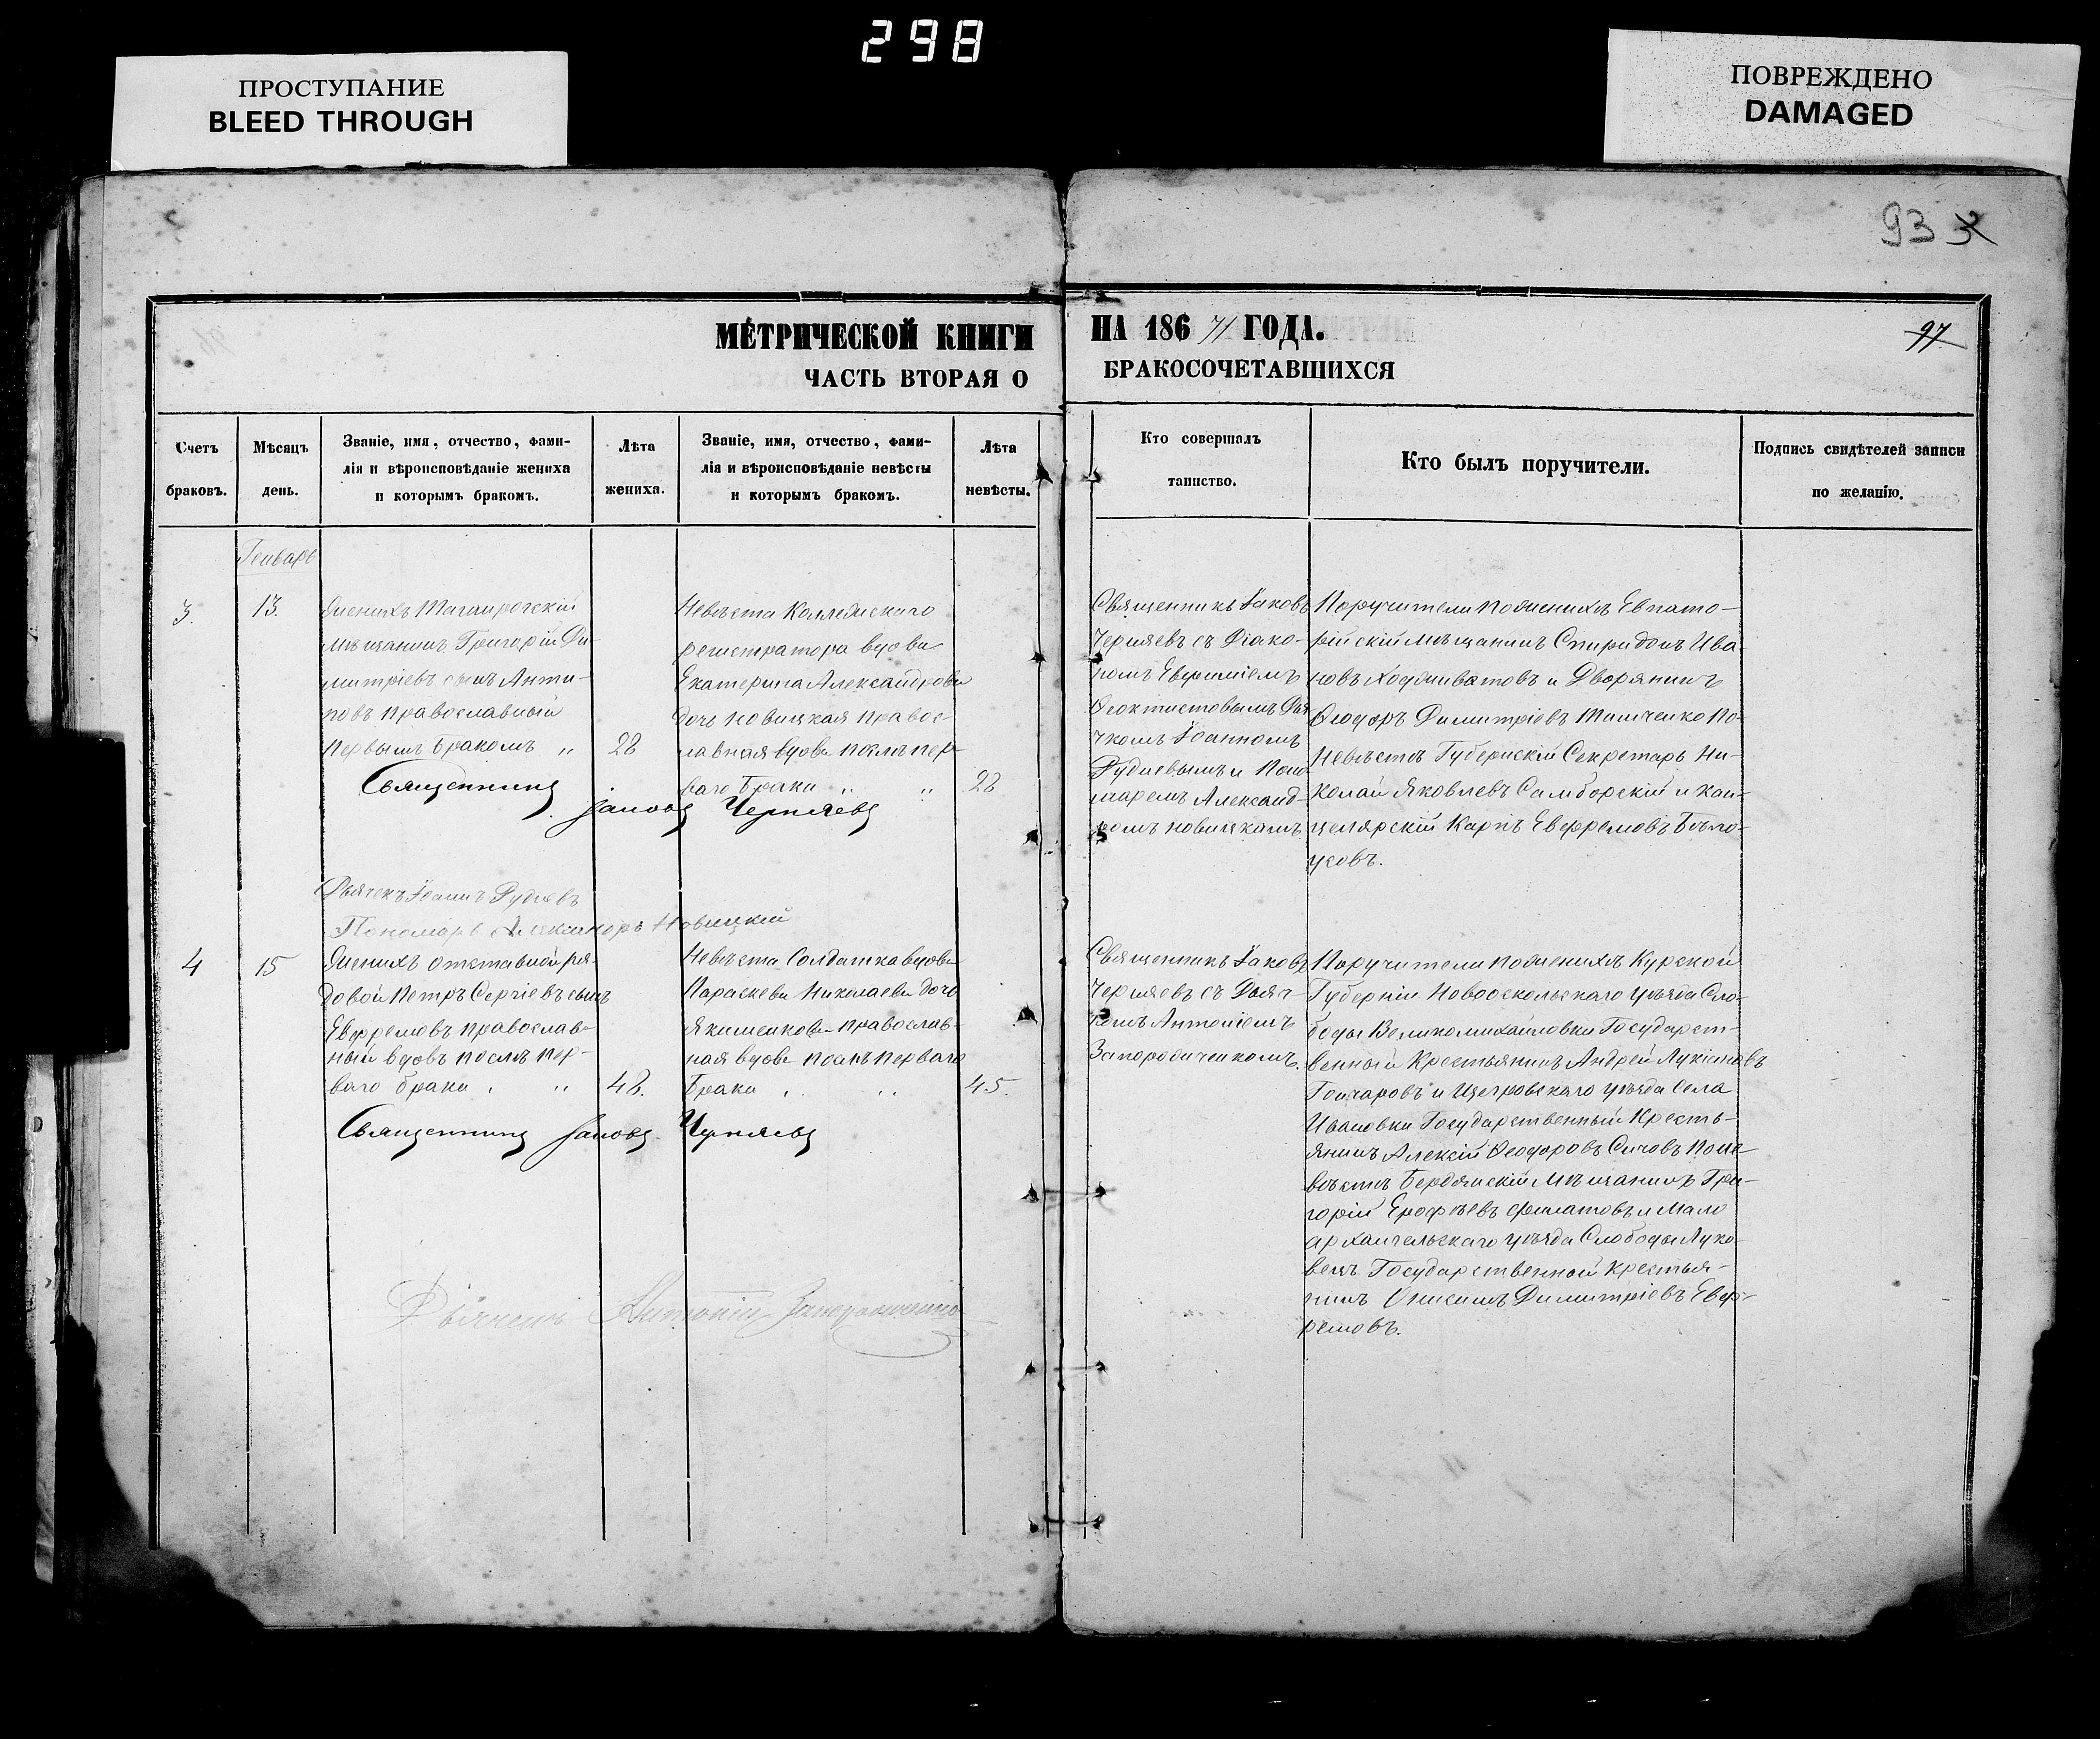 298
ПРОСТУПАНИЕ
BLEED THROUGH
ПОВРЕЖДЕНО
DAMAGED
93
97
МЕТРИЧЕСКОЙ КНИГИ НА 18671 ГОДА.
ЧАСТЬ ВТОРАЯ О БРАКОСОЧЕТАВШИХСЯ
Счетъ браковъ.
Мѣсяцъ день.
Званіе, имя, отчество, фами-
лія и вѣроисповѣданіе жениха
и которымъ бракомъ.
Лѣта жениха.
Званіе, имя, отчество, фами-
лія и вѣроисповѣданіе невѣсты
и которымъ бракомъ.
Лѣта невѣсты.
Кто совершалъ
таинство.
Кто былъ поручители.
Подпись свидѣтелей записи
по желанію.
Генварь
3.
13.
Женихъ Таганрогскій
мѣщанинъ Григорій Ди-
митріевъ сынъ Анти-
повъ православный
первымъ бракомъ „
28
Невѣста Коллежскаго
регистратора вдова
Екатерина Александрова
дочь Новицкая правос-
лавная вдова послѣ пер-
ваго брака „ „
28
Священникъ Іаковъ Черняевъ
Священникъ Іаковъ
Черняевъ съ Діако-
номъ Евгеніемъ
Ѳеоктистовымъ Дья-
чкомъ Іоанномъ
Рудневымъ и Поно-
маремъ Александ-
ромъ Новицкимъ
Поручители по женихѣ Евпато-
рійскій мѣщанинъ Спиридонъ Ива-
новъ Ходживатовъ и Дворянинъ
Ѳеодоръ Димитріевъ Тимченко по
Невѣстѣ Губернскій Секретарь Ни-
колай Яковлевъ Самборскій и кан-
целярскій Карпъ Евфремовъ
Дьячекъ Іоаннъ Рудневъ
Пономарь Александръ Новицкій
4
15
Женихъ отставной ря-
довой Петръ Сергіевъ сынъ
Евфремовъ православ-
ный вдовъ послѣ пер-
ваго брака „ „
48.
Невѣста Солдатка вдова
Параскева Николаева дочь
Якименкова православ-
ная вдова послѣ перваго
брака „ „
45.
Священникъ Іаковъ Черняевъ
Священникъ Іаковъ
Черняевъ съ Дьяч-
комъ Антоніемъ
Поручители по женихѣ Курской
Губерніи Новооскольскаго уѣзда Сло-
боды Великомихайловки Государст-
венный Крестьянинъ Андрей Лукіановъ
Гончаровъ и Щегровскаго уѣзда Села
Ивановки Государственный Кресть-
янинъ Алексій Ѳеодоровъ Сичовъ по не-
вѣстѣ Бердянскій мѣщанинъ Гри-
горій Ерофѣевъ и Мало
архангельскаго уѣзда Слободы Луко-
вецъ Государственной Крестья-
нинъ Онисимъ Димитріевъ Евф-
ремовъ.
Дьячекъ Антоній